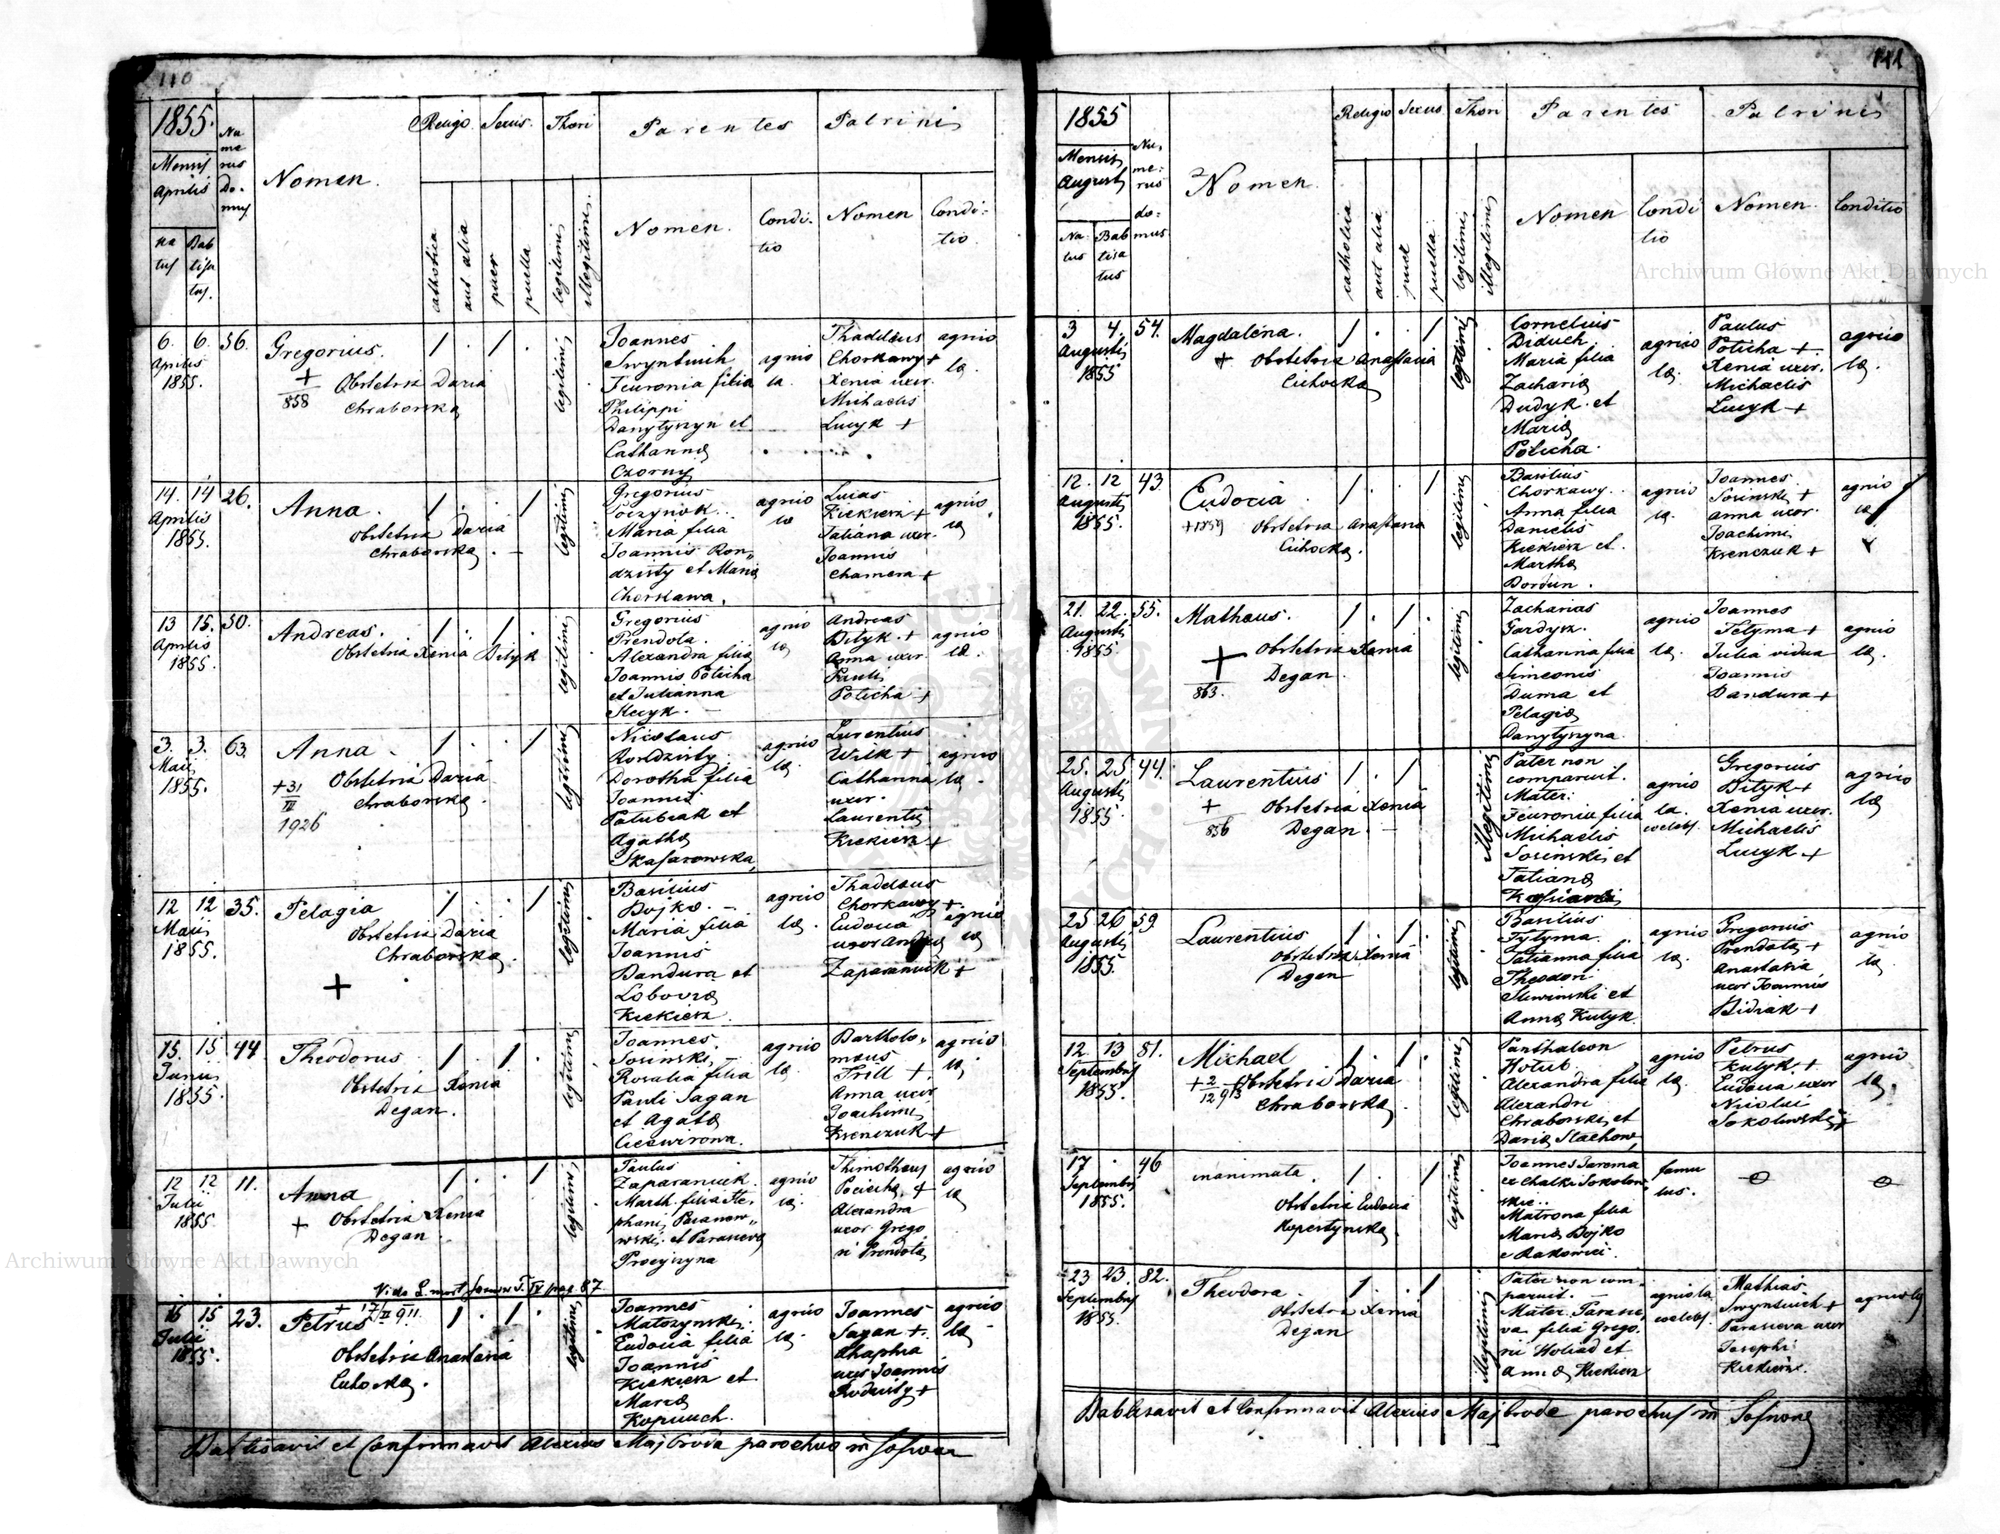 110
1855.
Mensis
Aprilis
na
tus
Bab
tisa
tus.
Nu
me
rus
Do-
mus
Nomen.
Religio.
Sexus.
Thori
Parentes
Patrini
catholica
aut alia
puer
puella
legitimi
illegitimi.
Nomen.
Condi-
tio
Nomen
Condi-
tio.
6. 6. 56.
Aprilis
1855.
Gregorius.
+
858
Obstetrix Daria
Chraborska
legitimi
Joannes
Swyntuch
Feuronia filia
Philippi
Danytyszyn et
Catharina
Czorny
agrico
la.
Thaddeus
Chorkawy +
Xenia uxor.
Michaelis
Lucyk +
agrico
la.
14. 14 26.
Aprilis
1855.
Anna.
Obstetrix Daria
Chraborska. -
legitimi
Gregorius
Poczynok.
Maria filia
Joannis Ron-
dzisty et Maria
Chorkawa.
agrico
la
Lucas
Kiekisz +
Tatiana uxor.
Joannis
Chamera +
agrico.
la
13 15. 50.
Aprilis
1855.
Andreas.
Obstetrix Xenia Bityk
legitimi
Gregorius
Prendota.
Alexandra filia
Joannis Poticha
et Julianna
Stecyk. -
agrico
la
Andreas
Bityk. +
Anna uxor
Pauli
Poticha +
agrico
la.
3. 3. 63.
Maii
1855.
Anna.
+31
III
1926
Obstetrix Daria
Chraborska.
legitimi
Nicolaus
Rondzisty.
Dorothea filia
Joannis
Patubiak et
Agatha
Skasarowska
agrico
la.
Laurentius
Wilk +
Catharina
uxor.
Laurentii
Kiekisz +
agrico
la.
12 12 35.
Maii
1855.
Pelagia
Obstetrix Daria
Chraborska.
+
legitimi
Basilius
Bojko. -
Maria filia
Joannis
Bandura et
Lobovia
Kiekisz.
agrico
la.
Thaddeus
Chorkawy +.
Eudocia
uxor
Zaparaniuk +
agrico
la
15. 15 44
Junii
1855.
Theodorus
Obstetrix Xenia
Degan.
legitimi
Joannes.
Sosinski, -
Rosalia filia
Pauli Sagan
et Agata
Cieswirowa.
agrico
la.
Bartholo-
meus
Trill +.
Anna uxor
Joachimi
Ksenczuk +
agrico
la
12 12 11.
Julii
1855
Anna
+
Obstetrix Xenia
Degan.
legitimi
Paulus
Zaparaniuk.
Marth. filia Ste-
phani Paranow-
wski. et Parasceva
Procyszyna
agrico
la.
Thimotheus
Pociecha. +
Alexandra
uxor Grego
rii Prendota
agrico
la
Vide L. mort. T. IV pag. 87
16 15 23.
Julii
1855.
Petrus
+ 17/II 911.
Obstetrix Anastasia
Cichocka.
legitimi
Joannes
Matoszynski.
Eudocia filia
Joannis
Kiekisz et
Maria
Kopciuch.
agrico
la.
Joannes
Sagan +.
Ahaphia
uxor Joannis
Rodzisty +
agrico
la
Babtisavit et Confirmavit Alexius Majbroda parochus in Sosnow
111
1855
Mensis
Augusti
Na
tus
Bab
tisa
tus
Nu,
me-
rus
do-
mus
Nomen.
Religio
Sexus
Thori
Parentes
Patrini
catholica
aut alia.
puer
puella.
legitimi
illegitimi
Nomen
Condi
tio
Nomen.
Conditio
3 4. 54.
Augusti
1855
Magdalena.
+ Obstetrix Anastasia
Cichocka
legitimi
Cornelius
Diduch.
Maria filia
Zacharia
Dudyk. et
Maria
Poticha.
agrico
la.
Paulus
Poticha +.
Xenia uxor.
Michaelis
Lucyk +
agrico
la.
12. 12 43.
Augusti
1855.
Eudocia.
+1857 Obstetrix Anastasia
Cichocka.
legitimi
Basilius
Chorkawy.
Anna filia
Danielis
Kiekisz et.
Martha
Bordun.
agrico
la.
Joannes.
Sosinski +
Anna uxor.
Joachimi
Ksenczuk +
agrico
la
21. 22. 55.
Augusti
1855.
Mathaus.
+
863.
Obstetrix Xenia
Degan.
legitimi
Zacharias
Gardysz.
Catharina filia
Simeonis
Duma et
Pelagia
Danytyszyna.
agrico
la.
Joannes
Tetyma +
Julia vidua
Joannis
Bandura +
agrico
la.
25. 25 44.
Augusti
1855.
Laurentius
+
856
Obstetrix Xenia
Degan. -
illegitimi
Pater non
comparuit.
Mater:
Feuronia filia
Michaelis
Sosinski et
Tatiana
agrico
la.
coelebs.
Gregorius
Bityk +
Xenia uxor.
Michaelis
Lucyk +
agrico
la
25 26 59.
Augusti
1855.
Laurentius
Obstetrix Xenia
Degan
legitimi
Basilius
Tytyma.
Tatianna filia
Theodori
Sliwinski et
Anna Kutyk.
agrico
la.
Gregorius
Prendota +
Anastasia
uxor Joannis
Bidiak +
agrico
la.
12. 13 81.
Septembris
1855.
Michael
+ 2/12 913
Obstetrix Daria
Chraborska
legitimi
Panthaleon
Hotub
Alexandra filia
Alexandri
Chraborski et
Daria Stachow
agrico
la.
Petrus
Kutyk. +
Eudocia uxor
Nicolai
Sokolowski +
agrico
la.
17 . 46
Septembris
1855.
inanimata.
Obstetrix Eudocia
Kopestynska.
legitimi
Joannes Jarema
ex Chatki Sokolow
skie..
Matrona filia
Maria Bojko
e Rakowiec.
famu
lus.
23 23. 82.
Septembris
1855.
Theodora.
Obstetrix Xenia
Degan
illegitimi
Pater non com-
paruit.
Mater. Parasce,
va. filia Grego.
rii Holiad et
Anna Kiekisz
agricola
coelebs.
Mathias
Swyntuch +
Parasceva uxor
Josephi
Kiekisz.
agricola
Babtisavit et Confirmavit Alexius Majbroda parochus in Sosnow
Archiwum Główne Akt Dawnych
Archiwum Główne Akt Dawnych